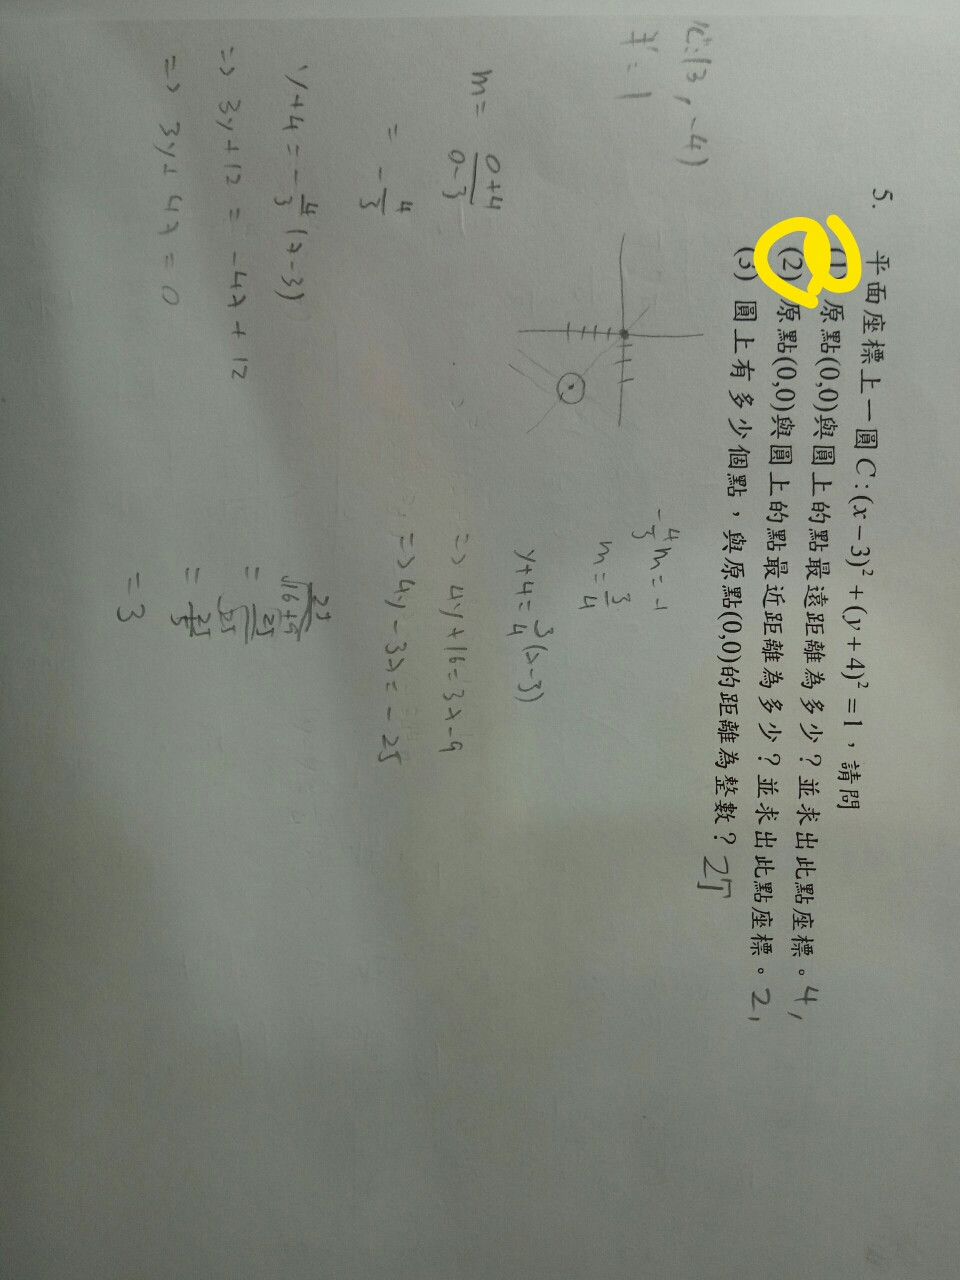 5. 平面座標上一圓C:(x-3)²+(y+4)²=1，請問
(1) 原點(0,0)與圓上的點最遠距離為多少？並求出此點座標。4,
(2) 原點(0,0)與圓上的點最近距離為多少？並求出此點座標。2,
(3) 圓上有多少個點，與原點(0,0)的距離為整數？
C:(3,-4)
半=1
m=(0+4)/(0-3)
=-4/3
y+4=-4/3(x-3)
=> 3y+12=-4x+12
=> 3y+4x=0
-4/3m=-1
m=3/4
y+4=3/4(x-3)
=> 4y+16=3x-9
=> 4y-3x=-25
25/√16+9
=25/√25
=25/5
=3